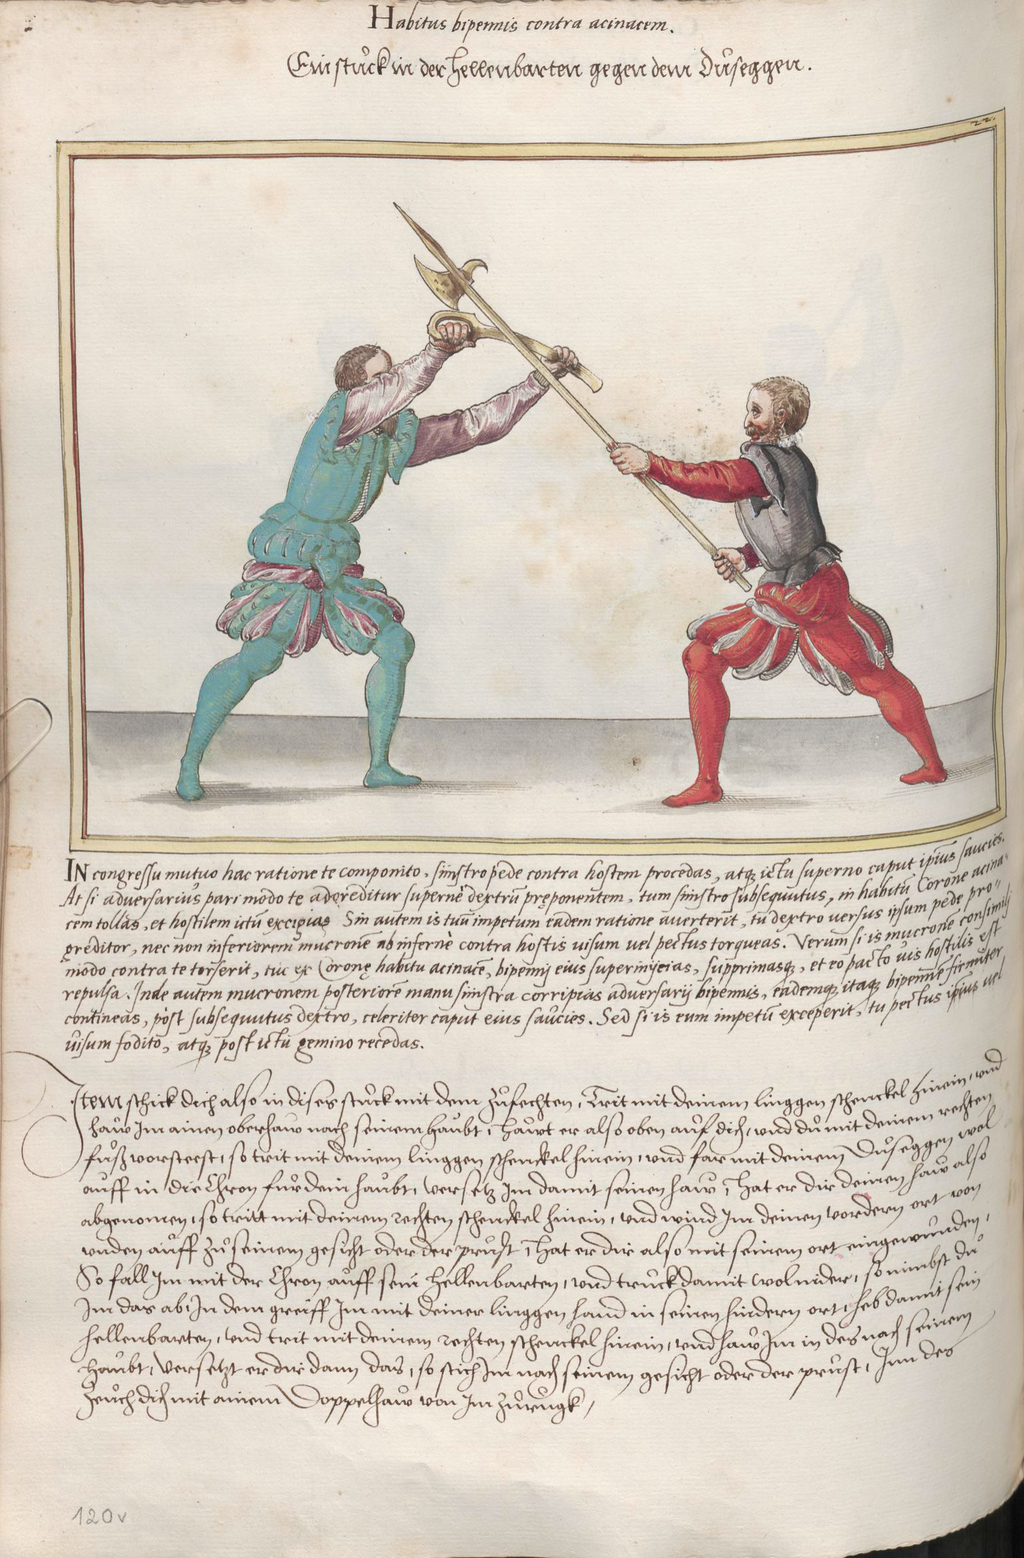 Habitus bipennis contra acinacem.
Ein stuckh in der hellenbarten gegen dem Duseggen.
22.
IN congressu mutuo hac ratione te componito, sinistro pede contra hostem procedas, atq; ictu superno caput ipsius saucies.
At si adversarius pari modo te adgreditur supernè dextrũ preponentem, tum sinistro subsequutus, in habitũ Coronę acina-
cem tollas, et hostilem ictũ excipias. Sin autem is tuũ impetum eadem ratione averterit, tu dextro versus ipsum pede pro-
greditor, nec non inferiorem mucronẽ ab infernè contra hostis visum vel pectus torqueas. Verum si is mucronẽ consimili
modo contra te torserit, tuc ex Coronę habitu acinacẽ, bipenni eius superinijcias, supprimasq;, et eo pacto vis hostilis est
repulsa. Inde autem mucronem posteriorẽ manu sinistra corripias adversarij bipennis, eademq; itaq; bipennẽ firmiter
contineas, post subsequutus dextro, celeriter caput eius saucies. Sed si is eum impetũ exceperit, tu pectus ipsius vel
visum fodito, atq; post ictũ gemino recedas.
Item schick dich also in dises stuckh mit dem Zufechten, Trit mit deinem linggen schenckel hinein, und
haw Im ainen oberhaw nach seinem haubt, hawt er also oben auf dich, und du mit deinem rechten
fuss vorsteest, so trit mit deinem linggen schenckel hinein, und far mit deinem Duseggen wol
auff in die Chron für dein haubt, versetz Im damit seinen haw, hat er dir deinen haw also
abgenomen, so tritt mit deinem rechten schenckel hinein, und wind Im deinen vordern ort von
unden auff zu seinem gesicht oder der prust, hat er dir also mit seinem ort eingewunden,
So fall Im mit der Chron auff sein hellenbarten, und truck damit wol nider, so nimbst du
Im das ab, In dem greiff Im mit deiner linggen hand in seinen hindern ort, heb damit sein
hellenbarten, und trit mit deinem rechten schenckel hinein, und haw Im in des nach seinem
haubt, Versetzt er dir dann das, so stich Im nach seinem gesicht oder der prust, Inn des
Zeuch dich mit ainem Doppelhaw von Im zurugk,
120v